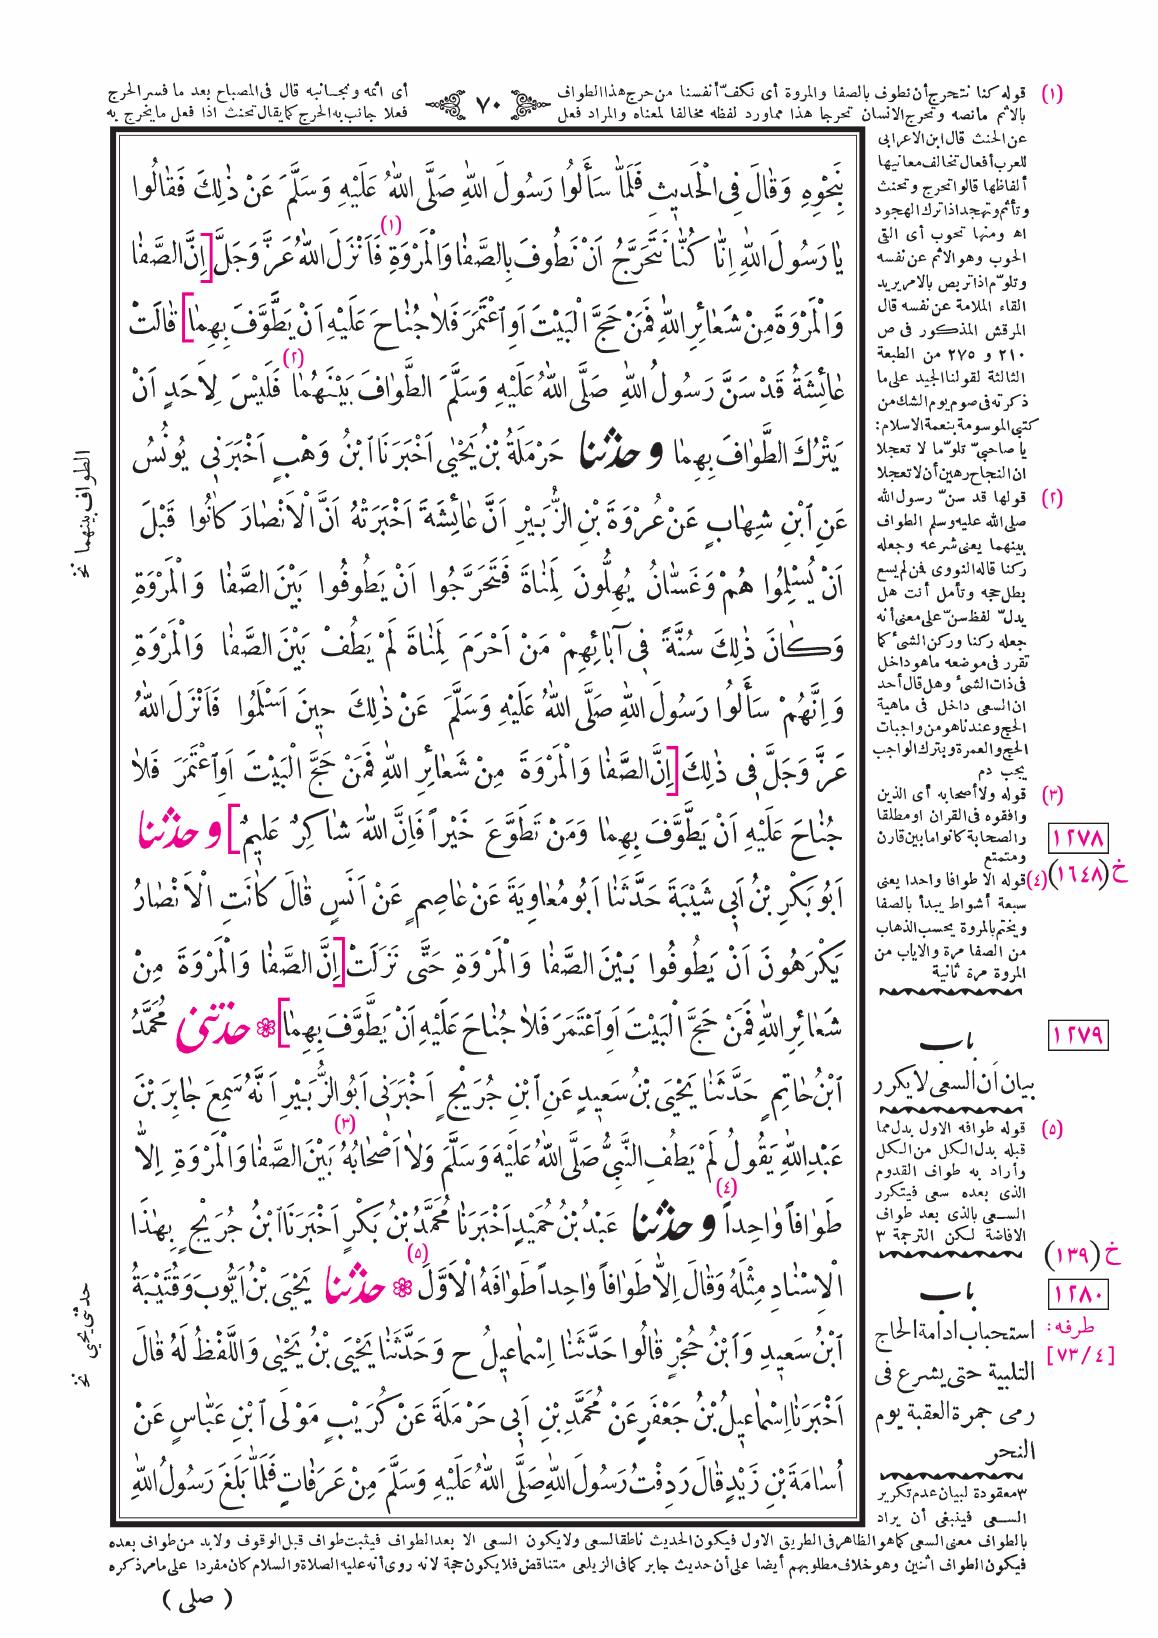 ٧٠
(١) قوله كنا نتحرج أن نطوف بالصفا والمروة أى نكفّ أنفسنا من حرج هذا الطواف
بالاثم ما نصه وتحرج الانسان تحرجا هذا مما ورد لفظه مخالفا لمعناه والمراد فعل
أى اثمه ونجانبه قال فى المصباح بعد ما فسر الحرج
فعلا جانب به الحرج كما يقال تحنث اذا فعل ما يخرج به
عن الحنث قال ابن الاعرابى
للعرب أفعال تخالف معانيها
ألفاظها قالوا تحرج وتحنث
وتأثم وتهجد اذا ترك الهجود
اه ومنها تحوب أى القى
الحوب وهو الاثم عن نفسه
وتلوّم اذا تربص بالامر يريد
القاء الملامة عن نفسه قال
المرقش المذكور فى ص
٢١٠ و ٢٧٥ من الطبعة
الثالثة لقولنا الجيد على ما
ذكرته فى صوم يوم الشك من
كتبى الموسومة بنعمة الاسلام:
يا صاحبىّ تلوّما لا تعجلا
ان النجاح رهين أن لا تعجلا
(٢) قولها قد سنّ رسول الله
صلى الله عليه وسلم الطواف
بينهما يعنى شرعه وجعله
ركنا قاله النووى فمن لم يسع
بطل حجه وتأمل أنت هل
يدلّ لفظ سنّ على معنى أنه
جعله ركنا وركن الشىء كما
تقرر فى موضعه ما هو داخل
فى ذات الشىء وهل قال أحد
ان السعى داخل فى ماهية
الحج وعندنا هو من واجبات
الحج والعمرة وبترك الواجب
يجب دم
(٣) قوله ولا أصحابه أى الذين
وافقوه فى القران او مطلقا
والصحابة كانوا ما بين قارن
ومتمتع
(٤) قوله الا طوافا واحدا يعنى
سبعة أشواط يبدأ بالصفا
ويختم بالمروة يحسب الذهاب
من الصفا مرة والاياب من
المروة مرة ثانية
١٢٧٨
خ (١٦٤٨)
١٢٧٩
باب
بيان أن السعى لا يكرر
(٥) قوله طوافه الاول بدل مما
قبله بدل الكل من الكل
وأراد به طواف القدوم
الذى بعده سعى فيتكرر
السعى بالذى بعد طواف
الافاضة لكن الترجمة ٣
خ (١٣٩)
١٢٨٠
طرفه:
[٧٣/٤]
باب
استحباب ادامة الحاج
التلبية حتى يشرع فى
رمى جمرة العقبة يوم
النحر
٣ معقودة لبيان عدم تكرير
السعى فينبغى أن يراد
بِنَحْوِهِ وَقَالَ فِى الْحَدِيثِ فَلَمَّا سَأَلُوا رَسُولَ اللهِ صَلَّى اللهُ عَلَيْهِ وَسَلَّمَ عَنْ ذٰلِكَ فَقَالُوا
يَا رَسُولَ اللهِ اِنَّا كُنَّا نَتَحَرَّجُ اَنْ نَطُوفَ بِالصَّفَا وَالْمَرْوَةِ (١) فَاَنْزَلَ اللهُ عَزَّ وَجَلَّ [اِنَّ الصَّفَا
وَالْمَرْوَةَ مِنْ شَعَائِرِ اللهِ فَمَنْ حَجَّ الْبَيْتَ اَوِ اعْتَمَرَ فَلَا جُنَاحَ عَلَيْهِ اَنْ يَطَّوَّفَ بِهِمَا] قَالَتْ
عَائِشَةُ قَدْ سَنَّ رَسُولُ اللهِ صَلَّى اللهُ عَلَيْهِ وَسَلَّمَ الطَّوَافَ بَيْنَهُمَا (٢) فَلَيْسَ لِاَحَدٍ اَنْ
يَتْرُكَ الطَّوَافَ بِهِمَا وحدثنا حَرْمَلَةُ بْنُ يَحْيٰى اَخْبَرَنَا ابْنُ وَهْبٍ اَخْبَرَنِى يُونُسُ
عَنِ ابْنِ شِهَابٍ عَنْ عُرْوَةَ بْنِ الزُّبَيْرِ اَنَّ عَائِشَةَ اَخْبَرَتْهُ اَنَّ الْاَنْصَارَ كَانُوا قَبْلَ
اَنْ يُسْلِمُوا هُمْ وَغَسَّانُ يُهِلُّونَ لِمَنَاةَ فَتَحَرَّجُوا اَنْ يَطُوفُوا بَيْنَ الصَّفَا وَالْمَرْوَةِ
وَكَانَ ذٰلِكَ سُنَّةً فِى آبَائِهِمْ مَنْ اَحْرَمَ لِمَنَاةَ لَمْ يَطُفْ بَيْنَ الصَّفَا وَالْمَرْوَةِ
وَاِنَّهُمْ سَأَلُوا رَسُولَ اللهِ صَلَّى اللهُ عَلَيْهِ وَسَلَّمَ عَنْ ذٰلِكَ حِينَ اَسْلَمُوا فَاَنْزَلَ اللهُ
عَزَّ وَجَلَّ فِى ذٰلِكَ [اِنَّ الصَّفَا وَالْمَرْوَةَ مِنْ شَعَائِرِ اللهِ فَمَنْ حَجَّ الْبَيْتَ اَوِ اعْتَمَرَ فَلَا
جُنَاحَ عَلَيْهِ اَنْ يَطَّوَّفَ بِهِمَا وَمَنْ تَطَوَّعَ خَيْراً فَاِنَّ اللهَ شَاكِرٌ عَلِيمٌ] وحدثنا
اَبُو بَكْرِ بْنُ اَبِى شَيْبَةَ حَدَّثَنَا اَبُو مُعَاوِيَةَ عَنْ عَاصِمٍ عَنْ اَنَسٍ قَالَ كَانَتِ الْاَنْصَارُ
يَكْرَهُونَ اَنْ يَطُوفُوا بَيْنَ الصَّفَا وَالْمَرْوَةِ حَتّٰى نَزَلَتْ [اِنَّ الصَّفَا وَالْمَرْوَةَ مِنْ
شَعَائِرِ اللهِ فَمَنْ حَجَّ الْبَيْتَ اَوِ اعْتَمَرَ فَلَا جُنَاحَ عَلَيْهِ اَنْ يَطَّوَّفَ بِهِمَا] حدثنى مُحَمَّدُ
ابْنُ حَاتِمٍ حَدَّثَنَا يَحْيَىَ بْنُ سَعِيدٍ عَنِ ابْنِ جُرَيْجٍ اَخْبَرَنِى اَبُو الزُّبَيْرِ اَنَّهُ سَمِعَ جَابِرَ بْنَ
عَبْدِ اللهِ يَقُولُ لَمْ يَطُفِ النَّبِىُّ صَلَّى اللهُ عَلَيْهِ وَسَلَّمَ وَلَا اَصْحَابُهُ (٣) بَيْنَ الصَّفَا وَالْمَرْوَةِ اِلَّا
طَوَافاً وَاحِداً (٤) وحدثنا عَبْدُ بْنُ حُمَيْدٍ اَخْبَرَنَا مُحَمَّدُ بْنُ بَكْرٍ اَخْبَرَنَا ابْنُ جُرَيْجٍ بِهٰذَا
الْاِسْنَادِ مِثْلَهُ وَقَالَ اِلَّا طَوَافاً وَاحِداً طَوَافَهُ الْاَوَّلَ (٥) حدثنا يَحْيَى بْنُ اَيُّوبَ وَقُتَيْبَةُ
ابْنُ سَعِيدٍ وَابْنُ حُجْرٍ قَالُوا حَدَّثَنَا اِسْمَاعِيلُ ح وَحَدَّثَنَا يَحْيَى بْنُ يَحْيٰى وَاللَّفْظُ لَهُ قَالَ
اَخْبَرَنَا اِسْمَاعِيلُ بْنُ جَعْفَرٍ عَنْ مُحَمَّدِ بْنِ اَبِى حَرْمَلَةَ عَنْ كُرَيْبٍ مَوْلَى ابْنِ عَبَّاسٍ عَنْ
اُسَامَةَ بْنِ زَيْدٍ قَالَ رَدِفْتُ رَسُولَ اللهِ صَلَّى اللهُ عَلَيْهِ وَسَلَّمَ مِنْ عَرَفَاتٍ فَلَمَّا بَلَغَ رَسُولُ اللهِ
الطواف بينهما نخ
حدثنى يحيى نخ
بالطواف معنى السعى كما هو الظاهر فى الطريق الاول فيكون الحديث ناطقا لسعى ولا يكون السعى الا بعد الطواف فيثبت طواف قبل الوقوف ولابد من طواف بعده
فيكون الطواف اثنين وهو خلاف مطلوبهم أيضا على أن حديث جابر كما فى الزيلعى متناقض فلا يكون حجة لانه روى أنه عليه الصلاة والسلام كان مفردا على ما مر ذكره
( صلى )